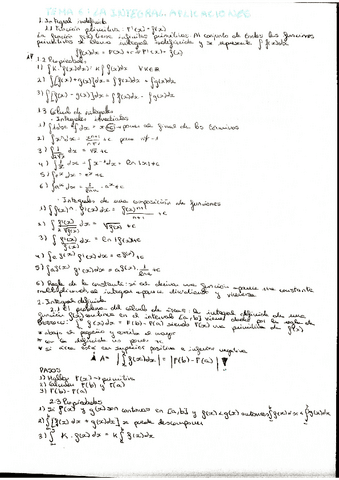 TEMA 6: LA INTEGRAL. APLICACIONES
1. Integral indefinida
1.1 Función primitiva: F'(x) = f(x)
La función f(x) tiene infinitas primitivas. Al conjunto de todas las funciones
primitivas se llama integral indefinida y se representa ∫f(x)dx
∫f(x)dx = F(x)+c → F'(x) = f(x)
1.2 Propiedades
1) ∫K·f(x)dx = K∫f(x)dx ∀K∈R
2) ∫[f(x)+g(x)]dx = ∫f(x)dx + ∫g(x)dx
3) ∫[f(x)-g(x)]dx = ∫f(x)dx - ∫g(x)dx
1.3 Cálculo de integrales
· Integrales inmediatas
1) ∫1dx = ∫dx = x+c → poner al final de los
2) ∫xⁿdx = xⁿ⁺¹/n+1 + c para n≠-1
3) dx = √x + c
4) ∫1/x dx = ∫x⁻¹dx = ln|x|+c
5) ∫eˣdx = eˣ+c
6) ∫aˣdx = 1/lna · aˣ+c
· Integrales de una composición de funciones
1) ∫f(x)ⁿ·f'(x)dx = f(x)ⁿ⁺¹/n+1 + c
2) dx = √f(x) + c
3) ∫f'(x)/f(x) dx = ln|f(x)|+c
4) f'(x)dx =
5) ∫a f(x) f'(x)dx = a f(x) · 1/lna + c
6) Regla de la constante: si al derivar una función aparece una constante
multiplicando, al integrar aparece dividiendo y viceversa
2. Integral definida
2.1 El problema del cálculo de áreas: la integral definida de una
función f(x) en el intervalo [a,b] viene dada por la regla de
Barrow: ∫f(x)dx = F(b)-F(a) siendo F(x) una primitiva de f(x)
* abajo el pequeño y arriba el mayor
* en la definida no pones +c
* si área está en superior positiva e inferior negativa
A = |∫f(x)dx| = |F(b)-F(a)|
PASOS
1) Hallar F(x) → primitiva
2) Calcular F(b) y F(a)
3) F(b)-F(a)
2.3 Propiedades
1) Si f(x) y g(x) son continuas en [a,b] y f(x)<g(x) entonces ∫f(x)dx < ∫g(x)dx
2) ∫[f(x)dx + g(x)dx] se puede descomponer
3) ∫K·f(x)dx = K∫f(x)dx